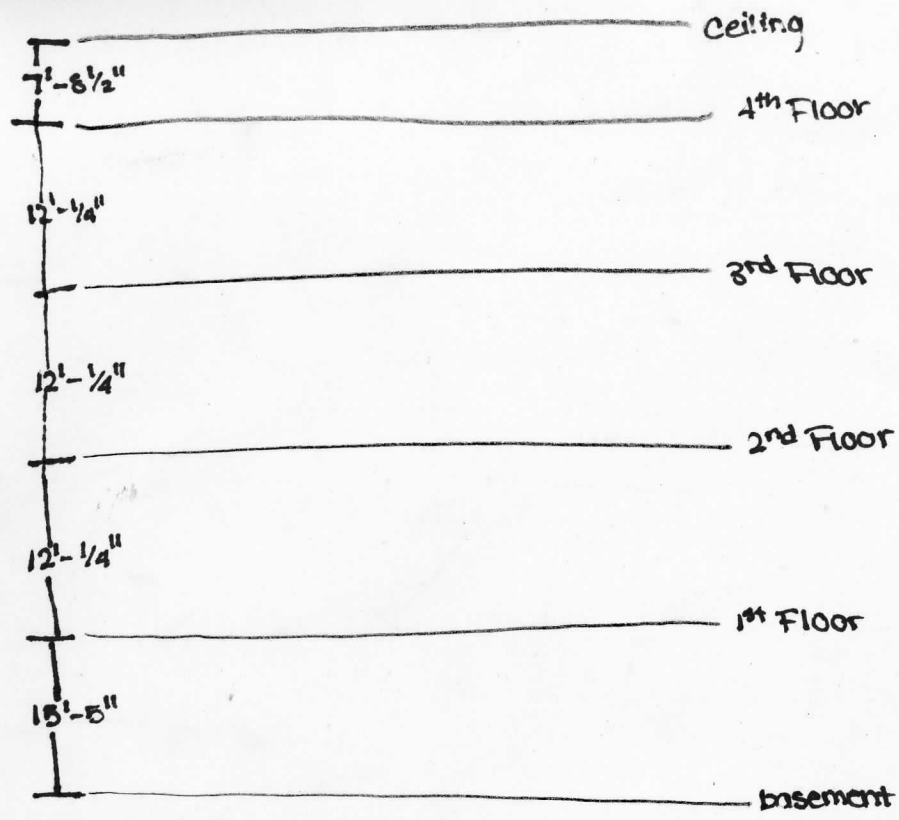 Ceiling
7'-8½"
4th Floor
12'-¼"
3rd Floor
12'-¼"
2nd Floor
12'-¼"
1st Floor
15'-5"
basement